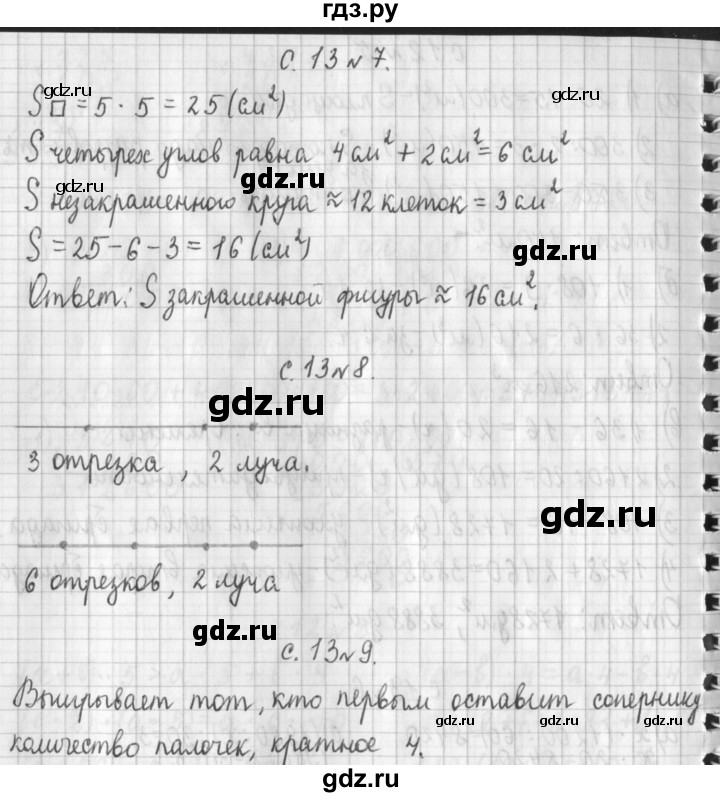 гдз.ру
с. 13 № 7.
S □ = 5 · 5 = 25 (см²)
S четырех углов равна 4 см² + 2 см² = 6 см²
S незакрашенного круга ≈ 12 клеток = 3 см²
S = 25 - 6 - 3 = 16 (см²)
Ответ: S закрашенной фигуры ≈ 16 см².
с. 13 № 8.
3 отрезка, 2 луча.
6 отрезков, 2 луча
с. 13 № 9.
Выигрывает тот, кто первым оставит сопернику
количество палочек, кратное 4.
gdz.ru
gdz.ru
gdz.ru
gdz.ru
gdz.ru
gdz.ru
gdz.ru
gdz.ru
gdz.ru
gdz.ru
gdz.ru
gdz.ru
gdz.ru